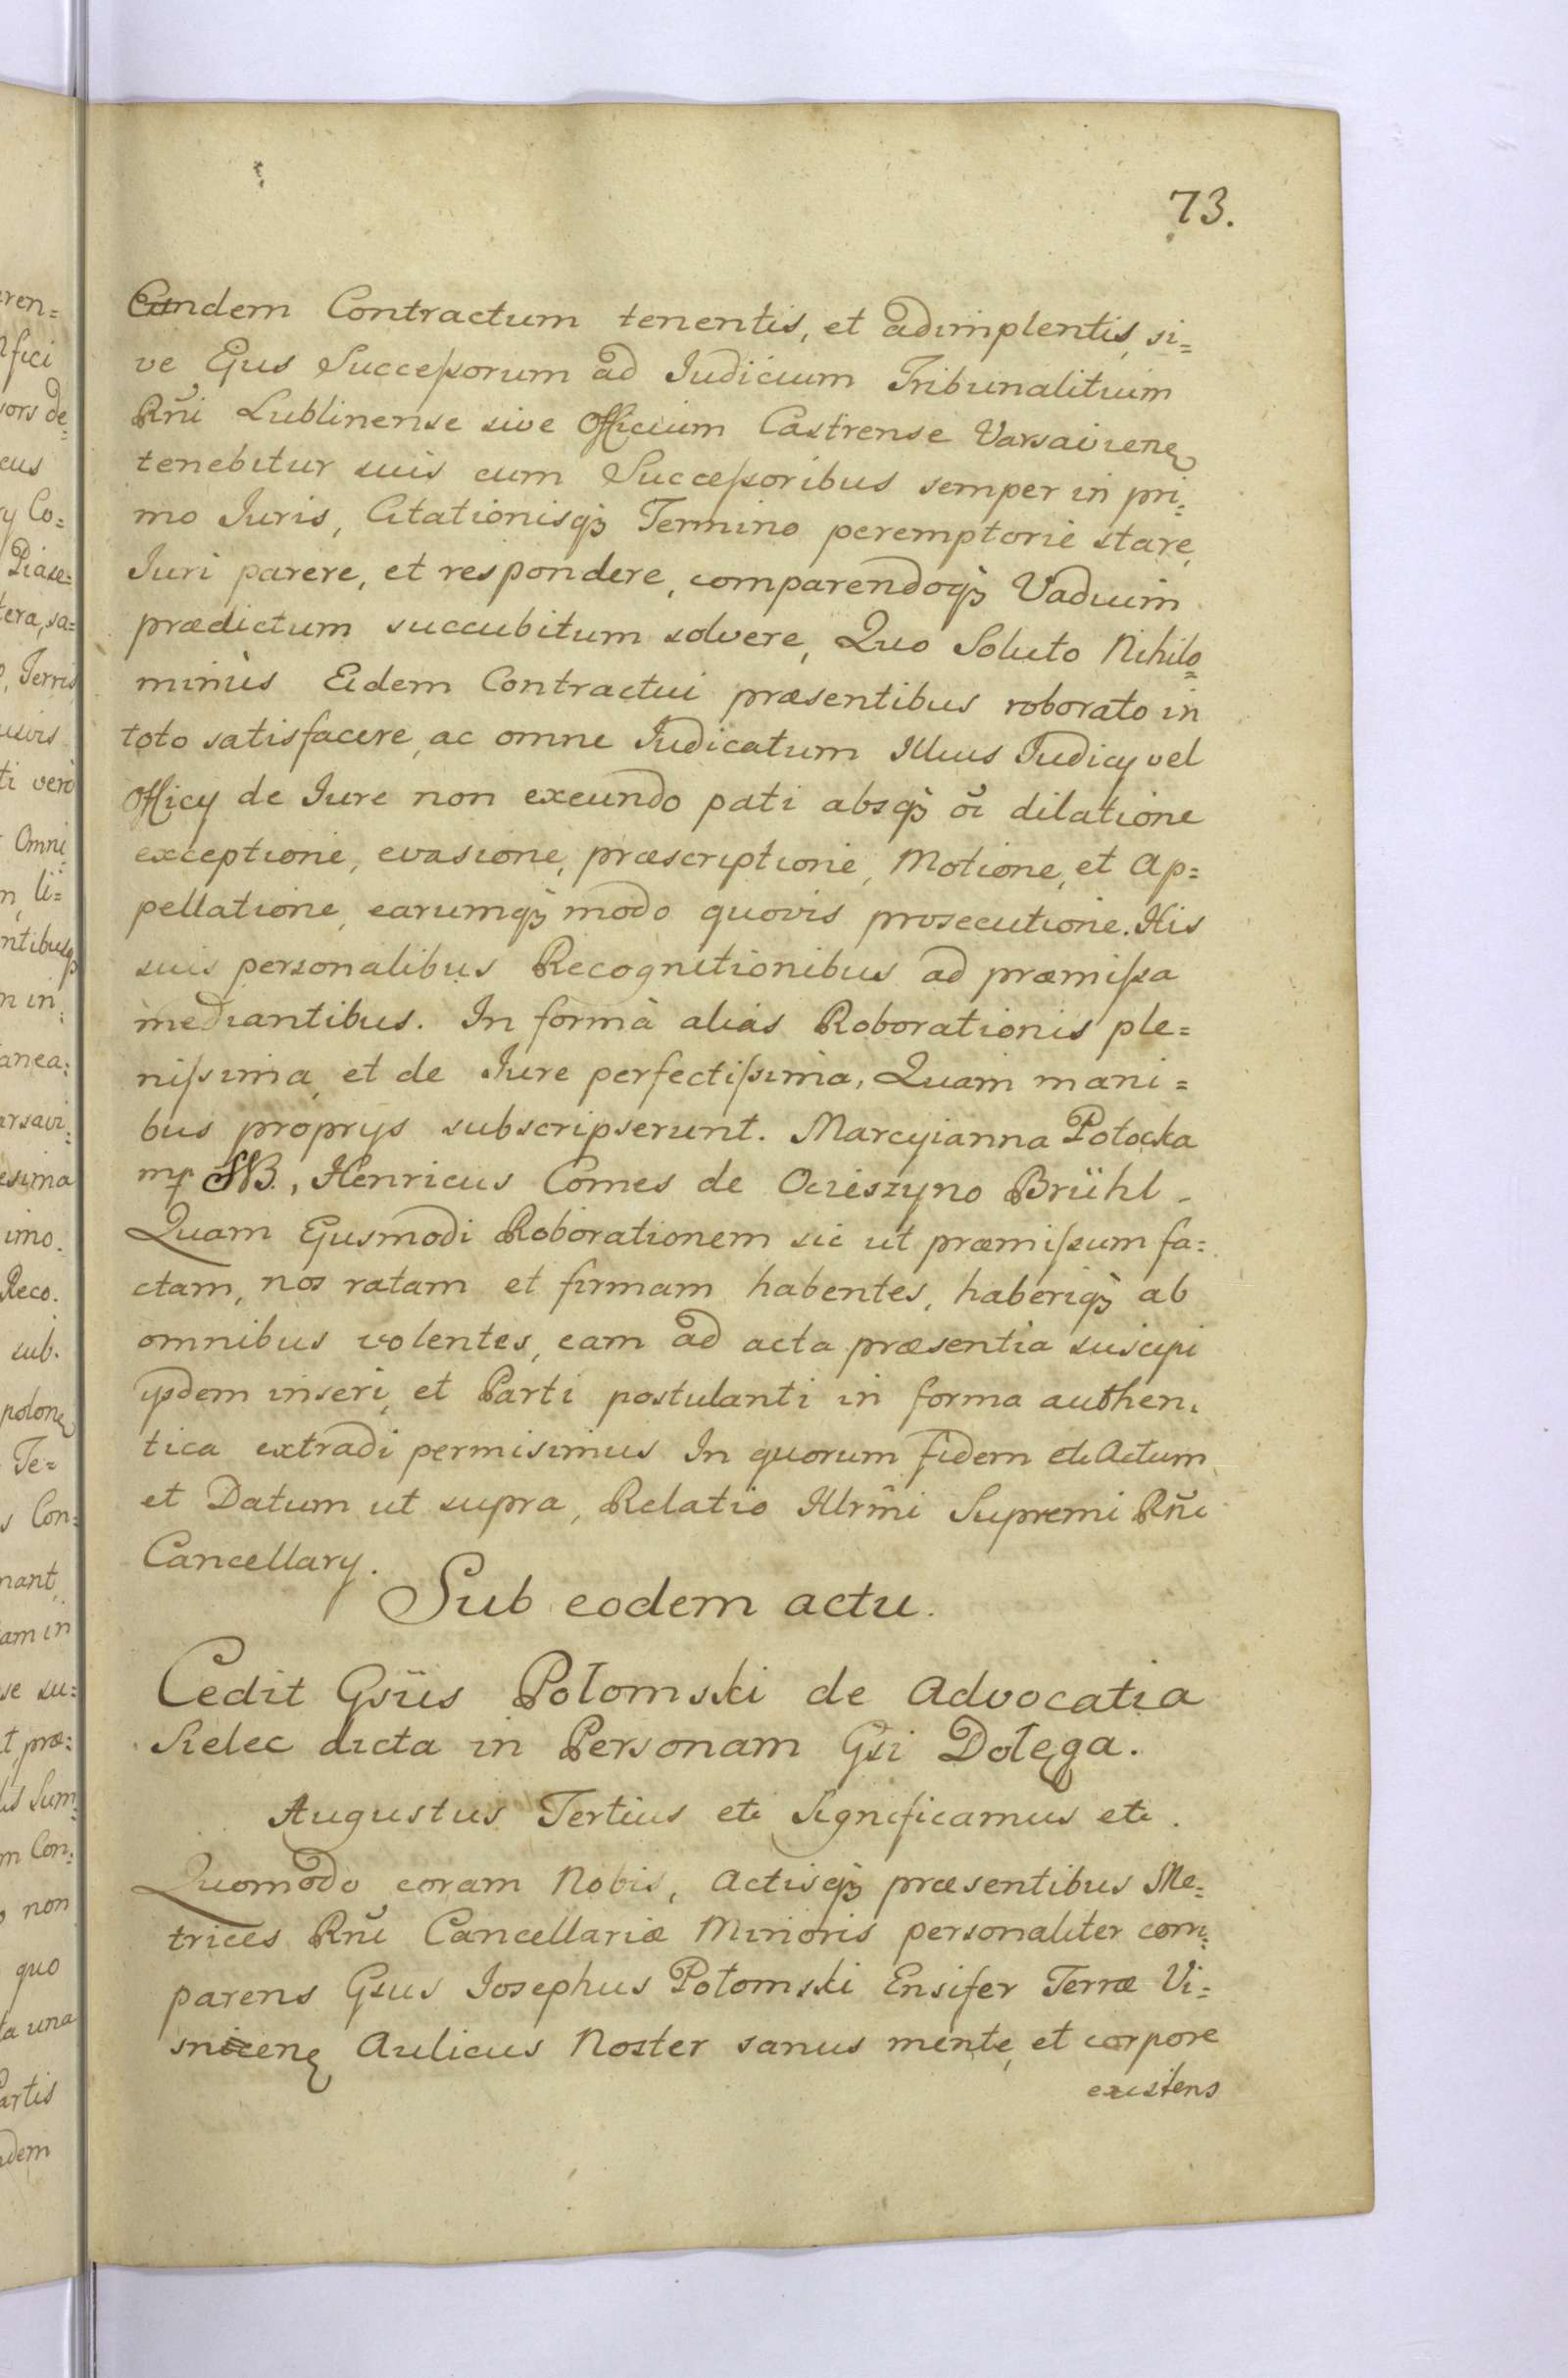 73.
Eundem Contractum tenentis, et adimplentis, si=
ve Ejus Succeſsorum ad Iudicium Tribunalitium
Rñi Lublinense sive Officium Castrense Varsaviens
tenebitur suis cum Succeſsoribus semper in pri=
mo Iuris, Citationisq3 Termino peremptorie stare,
Iuri parere, et respondere, comparendoq3 Vadium
prædictum succubitum solvere, Quo Soluto Nihilo=
minùs Eidem Contractui præsentibus roborato in
toto satisfacere, ac omne Iudicatum Illius Iudicy vel
Officy de Iure non exeundo pati absq3 õi dilatione
exceptione, evasione, præscriptione, Motione, et Ap=
pellatione, earumq3 modo quovis prosecutione. His
suis personalibus Recognitionibus ad præmiſsa
mediantibus. In formà aliàs Roborationis ple=
niſsima, et de Iure perfectiſsima, Quam mani=
bus proprys subscripserunt. Marcyianna Potocka
mp SWB., Henricus Comes de Ocieszyno Brühl -
Quam Ejusmodi Roborationem sic ut præmiſsum fa=
ctam, nos ratam et firmam habentes, haberiq3 ab
omnibus volentes, eam ad acta præsentia suscipi
ijsdem inseri, et Parti postulanti in forma authen=
tica extradi permisimus In quorum fidem etc Actum
et Datum ut supra, Relatio Illrmi Supremi Rñi
Cancellary.
Sub eodem actu.
Cedit Gsüs Połomski de Advocatia
Sielec dicta in Personam Gsi Dołęga.
Augustus Tertius etc Significamus etc.
Quomodo coram Nobis, Actisq3 præsentibus Me=
trices Rñi Cancellariæ Minoris personaliter com=
parens Gsus Iosephus Połomski Ensifer Terræ Vi=
snicens Aulicus Noster sanus mente, et corpore
existens